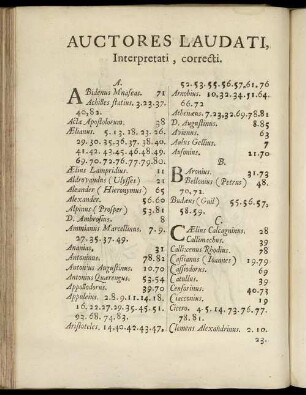 AUCTORES LAUDATI,
Interpretati, correcti.
A.
ABidenus Mnaseas. 71
Achilles statius. 3.23.37.
40,82.
Acta Apostolorum. 38
Ælianus. 5.13.18.23.26.
29.30.35.36.37.38.40.
41.42.43.45.46.46.49.
69.70.72.76.77.79.80.
Ælius Lampridius. 11
Aldrovandus (Ulysses) 21
Aleander (Hieronymus) 65
Alexander. 56.60
Alpinus (Prosper) 53.81
D. Ambrosius. 8
Ammianus Marcellinus. 7.9.
27.35.37.49.
Ananias. 31
Antoninus. 78.82
Antonius Augustinus. 10.70
Antonius Quærengus. 53.54
Apollodorus. 39.70
Appuleius. 2.8.9.11.14.18.
16.22.27.29.35.45.51.
92.68.74.83.
Aristoteles. 14.40.42.43.47.
52.53.55.56.57,61,76
Arnobius. 10,32.34.51.64.
66.72
Athenæus. 7.23,32.69.78.81
D. Augustinus. 8.85
Avienus. 63
Aulus Gellius. 7
Ausonius. 21.70
B.
BAronius. 31.73
Bellonius (Petrus) 48.
70,72.
Budæus (Guil) 55.56.57,
58.59.
C.
CÆlius Calcagninus. 28
Callimachus. 39
Callixenus Rhodius. 78
Cassianus (Ioannes) 19.79
Cassiodorus. 69
Catullus. 39
Censorinus. 40.73
Ciacconius. 19
Cicero. 4.5.14.73.76.77.
78.81.
Clemens Alexandrinus. 2.10.
23.